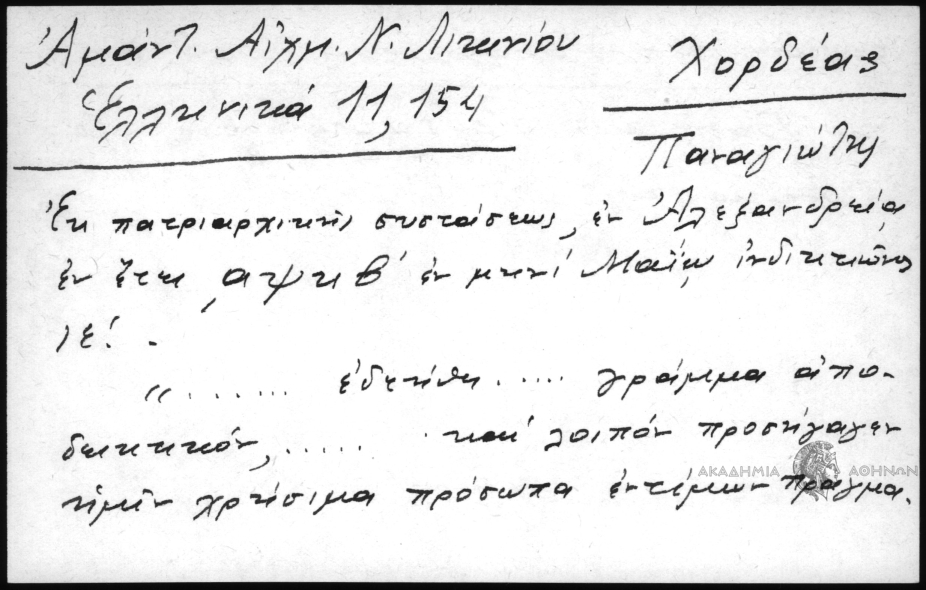 Ἀμάντ. Αἰχμ. Ν. Λιτανίου
Χορδέας
Ἑλληνικά 11, 154
Παναγιώτης
Ἐκ πατριαρχικῆς συστάσεως, ἐν Ἀλεξανδρείᾳ
ἐν ἔτει ͵αψκβ΄ ἐν μηνί Μαΐῳ ἰνδικτιῶνος
ιε΄. .
" ....... ἐδεήθη ..... γράμμα ἀπο-
δεικτικόν, ...... καί λοιπόν προσήγαγεν
ἡμῖν χρήσιμα πρόσωπα ἐντίμων πραγμα.
ΑΚΑΔΗΜΙΑ ΑΘΗΝΩΝ